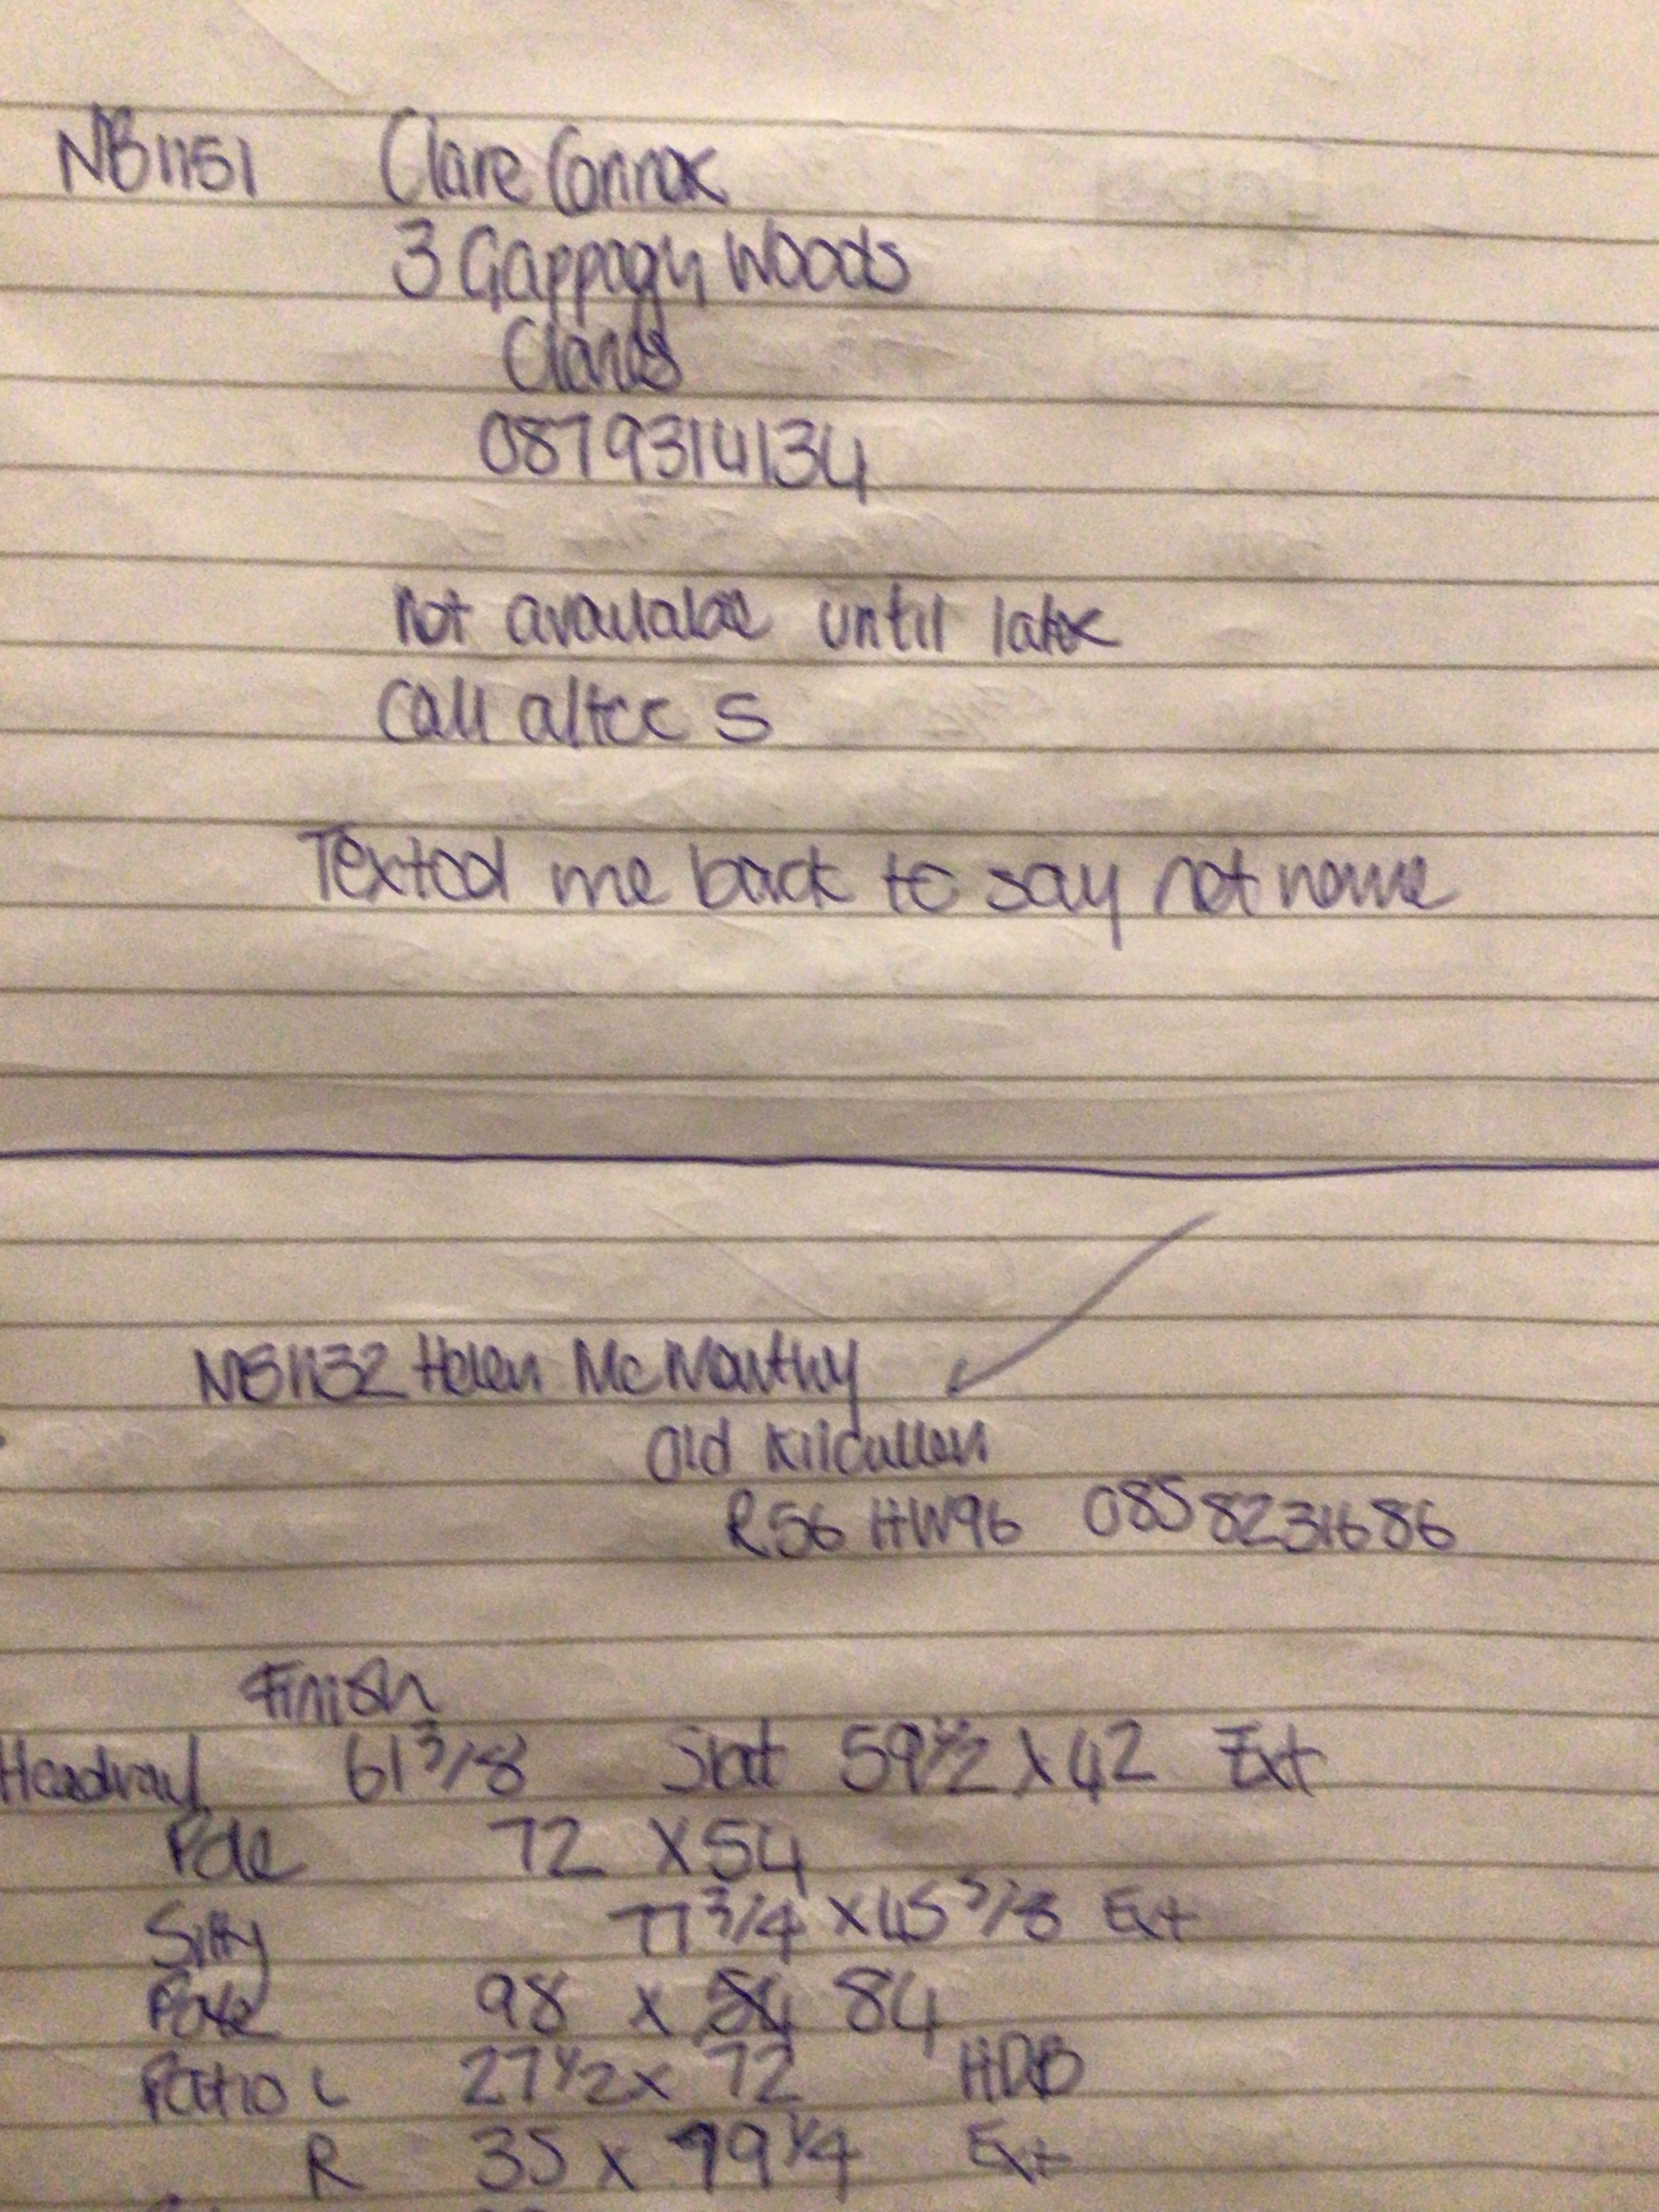 NB1151 Clare Connor
3 Gappagh Woods
Clane
0879314134
Not available until later
Call after 5
Texted me back to say not home
NB1132 Helen McMonthy
Old Kilcullen
R56 HW96 0858231686
Finish
Headrail 61 3/8 Slat 59 1/2 X 42 Ext
Pole 72 X 54
Sitty 77 3/4 X 45 5/8 Ext
Pole 98 x 84
Patio L 27 1/2 x 72 HDB
R 35 x 79 1/4 Ext